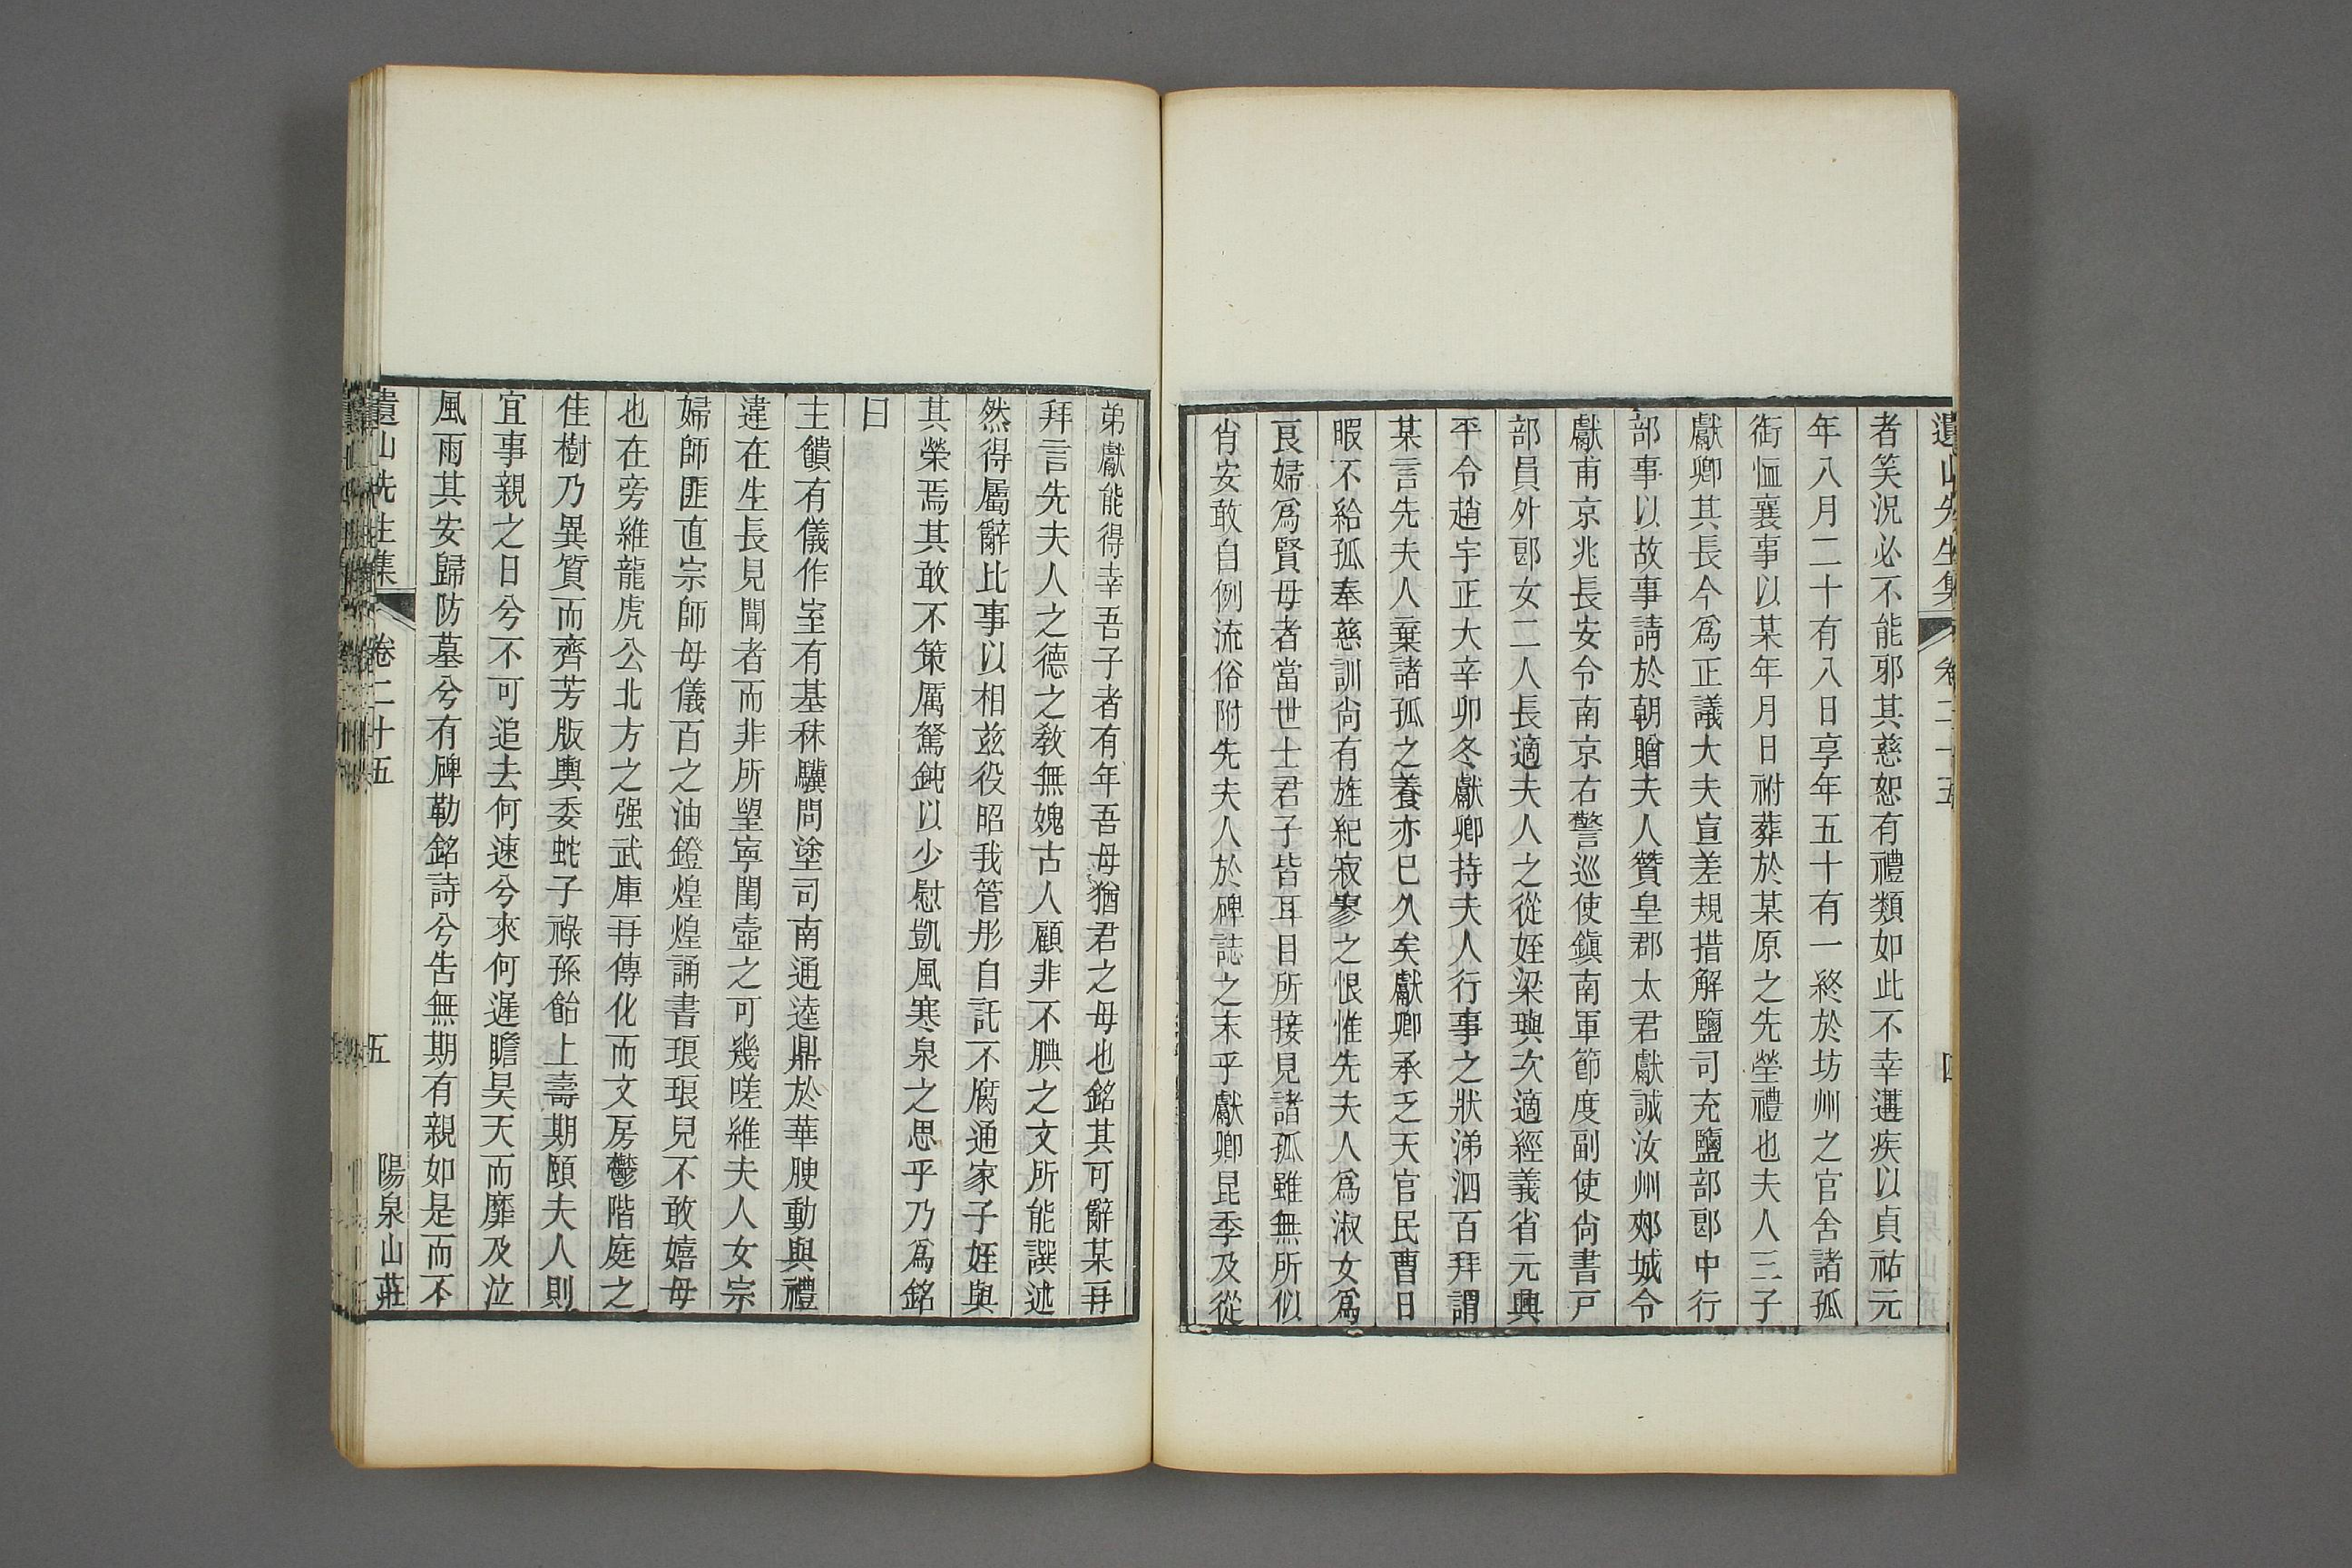 遺山先生集 卷二十五 四
者笑況必不能邪其慈恕有禮類如此不幸遘疾以貞祐元
年八月二十有八日享年五十有一終於坊州之官舍諸孤
銜恤襄事以某年月日祔葬於某原之先塋禮也夫人三子
獻卿其長今爲正議大夫宣差規措解鹽司充鹽部郎中行
部事以故事請於朝贈夫人贊皇郡太君獻誠汝州郟城令
獻甫京兆長安令南京右警巡使鎭南軍節度副使尙書戸
部員外郎女二人長適夫人之從姪梁璵次適經義省元興
平令趙宇正大辛卯冬獻卿持夫人行事之狀涕泗百拜謂
某言先夫人棄諸孤之養亦巳久矣獻卿承乏天官民曹日
暇不給孤奉慈訓尙有旌紀寂寥之恨惟先夫人爲淑女爲
良婦爲賢母者當世士君子皆耳目所接見諸孤雖無所似
肖安敢自例流俗附先夫人於碑誌之末乎獻卿昆季及從
弟獻能得幸吾子者有年吾母猶君之母也銘其可辭某再
拜言先夫人之德之敎無媿古人顧非不腆之文所能譔述
然得屬辭比事以相玆役昭我管彤自託不腐通家子姪與
其榮焉其敢不策厲駑鈍以少慰凱風寒泉之思乎乃爲銘
曰
主饋有儀作室有基秣驥問塗司南通逵鼎於華腴動與禮
違在生長見聞者而非所望寧閨壼之可幾嗟維夫人女宗
婦師匪直宗師母儀百之油鐙煌煌誦書琅琅兒不敢嬉母
也在旁維龍虎公北方之强武庫再傳化而文房鬱階庭之
佳樹乃異質而齊芳版輿委蛇子祿孫飴上壽期頤夫人則
宜事親之日兮不可追去何速兮來何遲瞻昊天而靡及泣
風雨其安歸防墓兮有碑勒銘詩兮告無期有親如是而不
遺山先生集 卷二十五 五 陽泉山莊